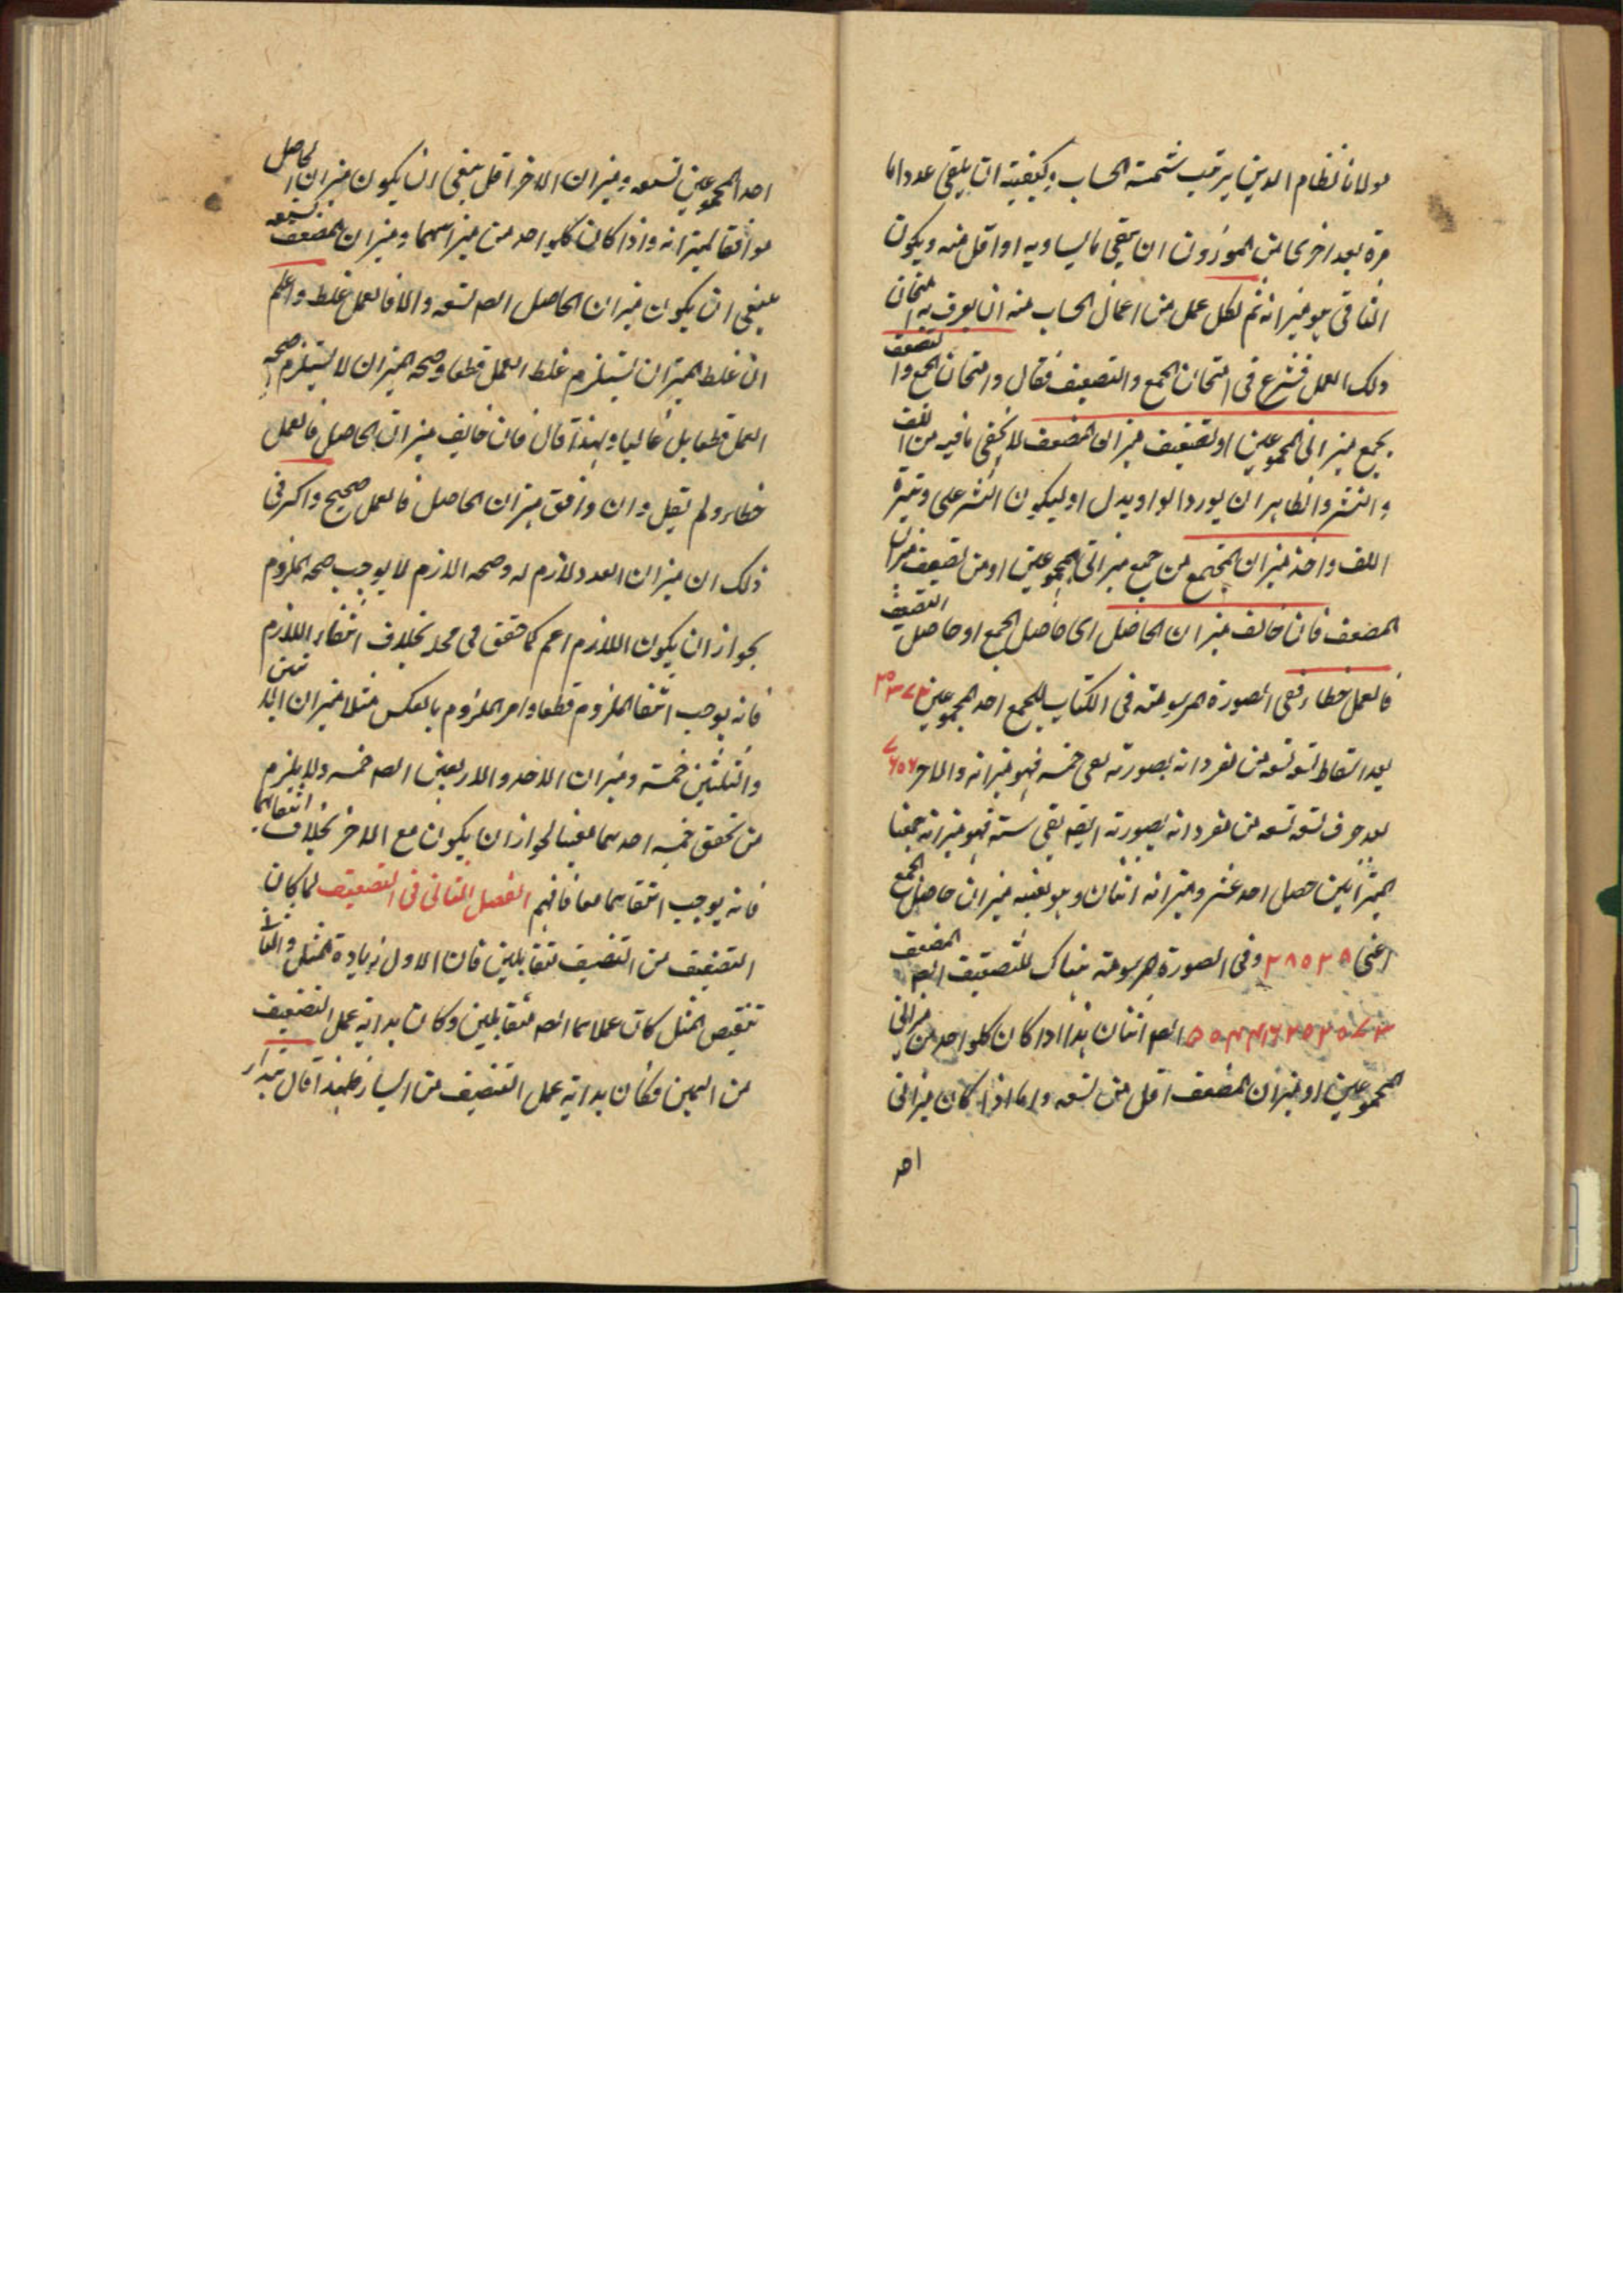 مولانا نظام الدين برقب شمسة الحساب وكيفيته ان يلقى عددا ما
مرة بعد اخرى من الموزون ان يبقى ما يساويه او اقل منه ويكون
الباقى هو ميزانه ثم لكل عمل من اعمال الحساب منه ان يعرف به امتحان
ذلك العمل فشرع فى امتحان الجمع والتضعيف فقال وامتحان الجمع والتضعيف
بجمع ميزانى المجموعين او تضعيف ميزان المضعف لا يخفى ما فيه من اللف
والنشر والظاهر ان يورد الواو بدل او ليكون النشر على وتيرة
اللف واخذ ميزان المجتمع من جمع ميزانى المجموعين او من تضعيف ميزان
المضعف فان خالف ميزان الحاصل اى حاصل الجمع او حاصل التضعيف
فالعمل خطاء ففى الصورة المرسومة فى الكتاب للجمع احد المجموعين ٢٠٣٧٢
بعد اسقاط تسعه تسعه من مفرداته بصورته يبقى خمسه فهو ميزانه والاخر ٧٦٥٦
بعد حرف تسعه تسعه من مفرداته بصورته ايضا يبقى ستة فهو ميزانه جمعنا
الميزانين حصل احد عشر وميزانه اثنان وهو بعينه ميزان حاصل الجمع
اعنى ٢٨٠٢٨ وفى الصورة المرسومة هناك للتضعيف المضعف ايضا
ايضا اثنان هذا اذا كان كل واحد من ميزانى
المجموعين او ميزان المضعف اقل من تسعه واما اذا كان ميزانى
احد
احد المجموعين تسعه وميزان الاخر اقل ينبغى ان يكون ميزان الحاصل
موافقا لميزانه واذا كان كل واحد من ميزانيهما وميزان المضعف تسعه
ينبغى ان يكون ميزان الحاصل ايضا تسعه والا فالعمل غلط واعلم
ان غلط الميزان يستلزم غلط العمل قطعا وصحه الميزان لا يستلزم صحه
العمل قطعا بل غالبا ولهذا قال فان خالف ميزان الحاصل فالعمل
خطاء ولم يقل وان وافق ميزان الحاصل فالعمل صحيح والسر فى
ذلك ان ميزان العدد لازم له وصحه اللازم لا يوجب صحه الملزوم
لجواز ان يكون اللازم اعم كما حقق فى محله بخلاف انتفاء اللازم
فانه يوجب انتفا الملزوم قطعا وامر الملزوم بالعكس مثلا ميزان الاثنين
والثلثين خمسة وميزان الاحد والاربعين ايضا خمسه ولا يلزم
من تحقق خمسه احدهما معينا لجواز ان يكون مع الاخر بخلاف انتفائها
فانه يوجب انتفاءهما معا فافهم الفصل الثانى فى التنصيف لما كان
التضعيف من التنصيف متقابلين فان الاول زيادة المثل والثانى
تنقيص المثل كان عملاهما ايضا متقابلين وكان بداية عمل التضعيف
من اليمين فكان بداية عمل التنصيف من اليسار فلهذا قال تبدا